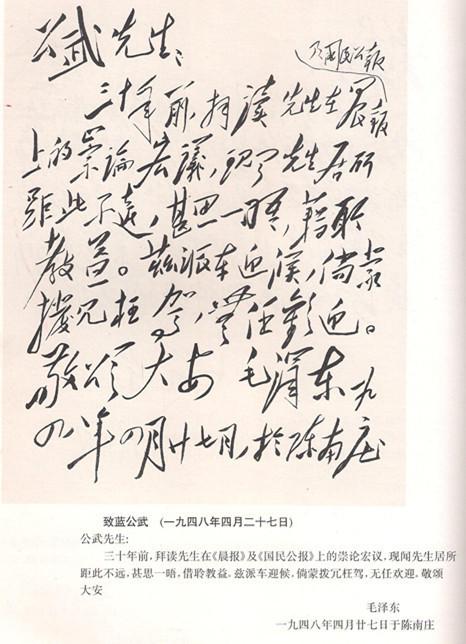 公武先生：
三十年前，拜读先生在晨报
及国民公报
上的崇论宏议，现闻先生居所
距此不远，甚思一晤，藉聆
教益。兹派车迎候，倘蒙
拨冗枉驾，无任欢迎。
敬颂大安 毛泽东 一九
四八年四月廿七日，于陈南庄
致蓝公武 (一九四八年四月二十七日)
公武先生:
三十年前，拜读先生在《晨报》及《国民公报》上的崇论宏议，现闻先生居所
距此不远，甚思一晤，借聆教益。兹派车迎候，倘蒙拨冗枉驾，无任欢迎。敬颂
大安
毛泽东
一九四八年四月廿七日于陈南庄